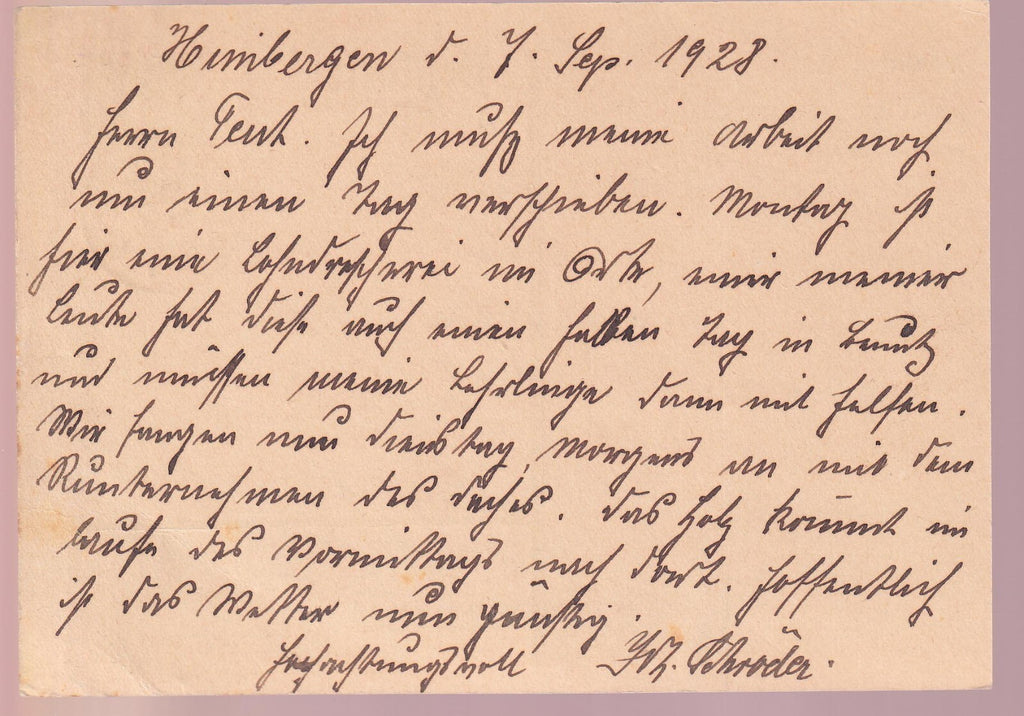 Himbergen d. 7. Sep. 1928.
Herrn Tent. Ich muß meine Arbeit noch
um einen Tag verschieben. Montag ist
hier eine Lohndrescherei im Orte, einer meiner
Leute hat diese auch einen halben Tag in Benutz
und müssen meine Lehrlinge dann mit helfen.
Wir fangen nun Dienstag Morgens an mit dem
Runternehmen des Daches. Das Holz kommt im
Laufe des Vormittags nach dort. Hoffentlich
ist das Wetter nun günstig.
Hochachtungsvoll Schröder.